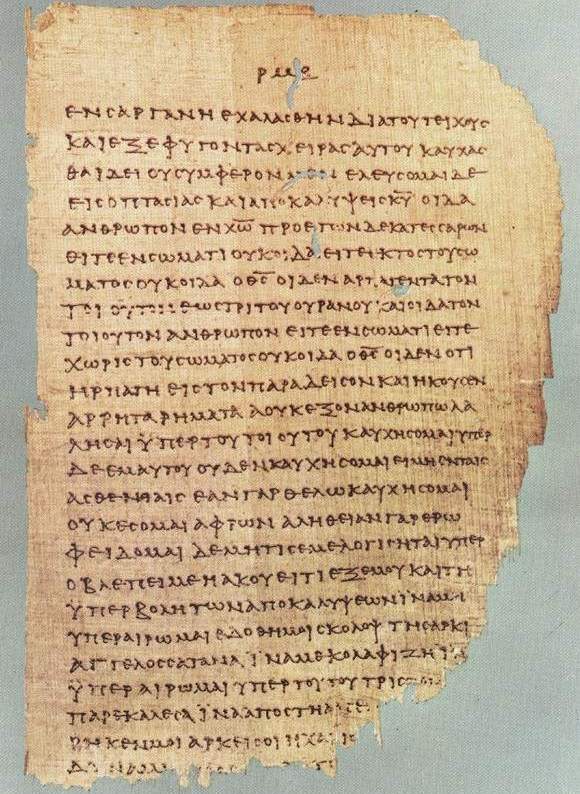 ρμε
ενσαργανηεχαλασθηνδιατουτειχους
καιεξεφυγοντασχειρασαυτου καυχασ
θαιδειουσυμφερονμεν ελευσομαιδε
εισοπτασιαςκαιαποκαλυψεισκ̅υ̅ οιδα
ανθρωπονενχ̅ω̅ προετωνδεκατεσσαρων
ειτεενσωματιουκοιδαειτεεκτοςτουσω
ματοσουκοιδα οθ̅ς̅οιδεναρπαγεντατον
τοιουτονεωστριτουουρανου καιοιδατον
τοιουτον ανθρωπον ειτεενσωματιειτε
χωριστουσωματοσουκοιδα οθ̅ς̅οιδενοτι
ηρπαγη ειστονπαραδεισονκαιηκουσεν
αρρηταρηματα αουκεξονανθρωπωλα
λησαι ϋπερτουτοιουτουκαυχησομαιϋπερ
δεεμαυτουουδενκαυχησομαιειμηενταις
ασθενειαις εανγαρθελωκαυχησομαι
ουκεσομαιαφρων αληθειανγαρερω
φειδομαι δεμητισεμελογισηταιϋπερ
οβλεπειμεηακουειτιεξεμουκαιτη
ϋπερβολητωναποκαλυψεωνϊναμη
υπεραιρωμαιεδοθημοισκολοψ τησαρκι
αγγελοσσατανα ϊναμεκολαφιζηϊνα
ϋπεραιρωμαιϋπερτουτουτρισ
παρεκαλεσαϊνααποστη
ρηκενμοιαρκεισοιηχαρις
δυναμ